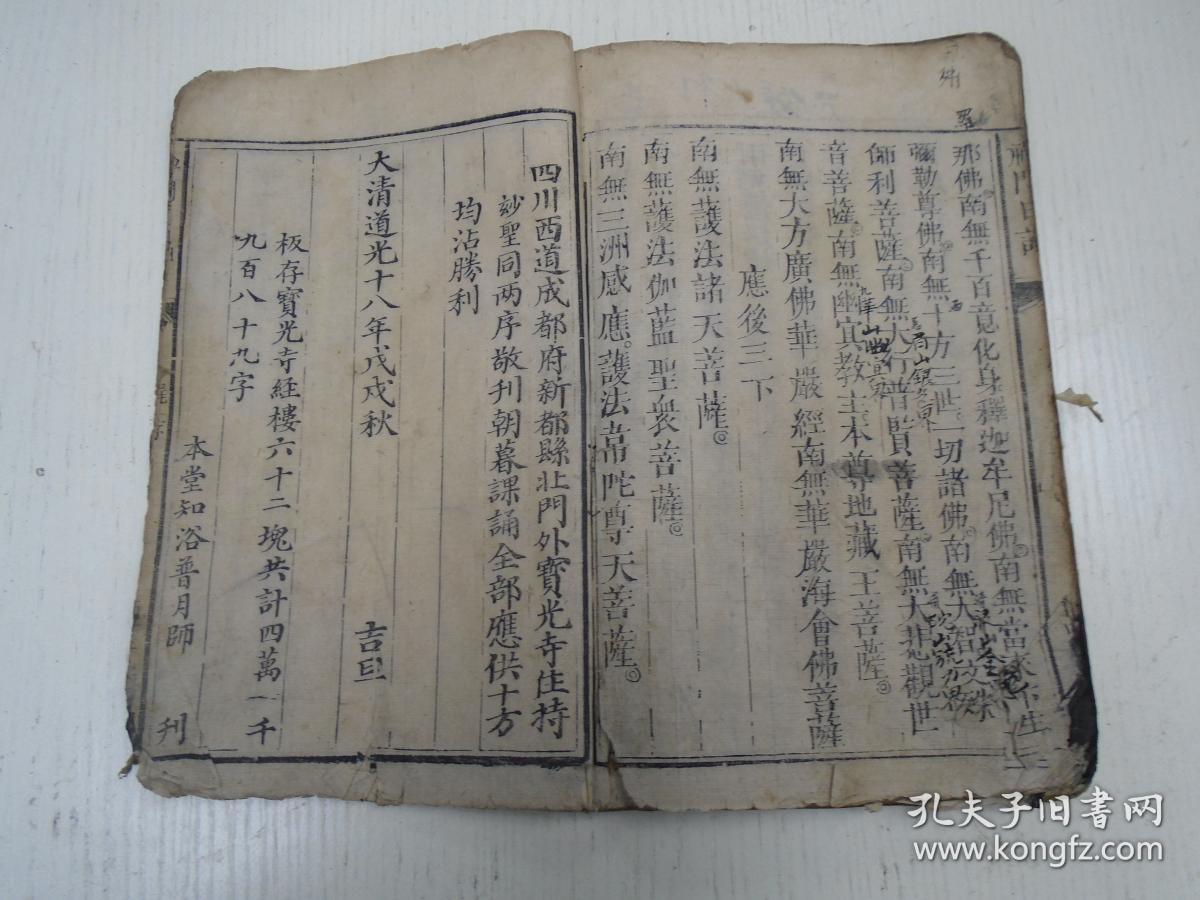 禪門日誦
那佛南無千百意化身釋迦牟尼佛南無當來下生
彌勒尊佛南無十方三世一切諸佛南無大智文殊
師利菩薩南無大行普賢菩薩南無大悲觀世
音菩薩南無幽冥教主本尊地藏王菩薩
南無大方廣佛華嚴經南無華嚴海會佛菩薩
應後三下
南無護法諸天菩薩
南無護法伽藍聖衆菩薩
南無三洲感應護法韋陀尊天菩薩
四川西道成都府新都縣北門外寶光寺住持
妙聖同两序敬刊朝暮課誦全部應供十方
均沾勝利
大清道光十八年戊戌秋 吉旦
板存寶光寺經樓六十二塊共計四萬一千
九百八十九字
本堂知浴普月師 刊
孔夫子旧书网
www.kongfz.com